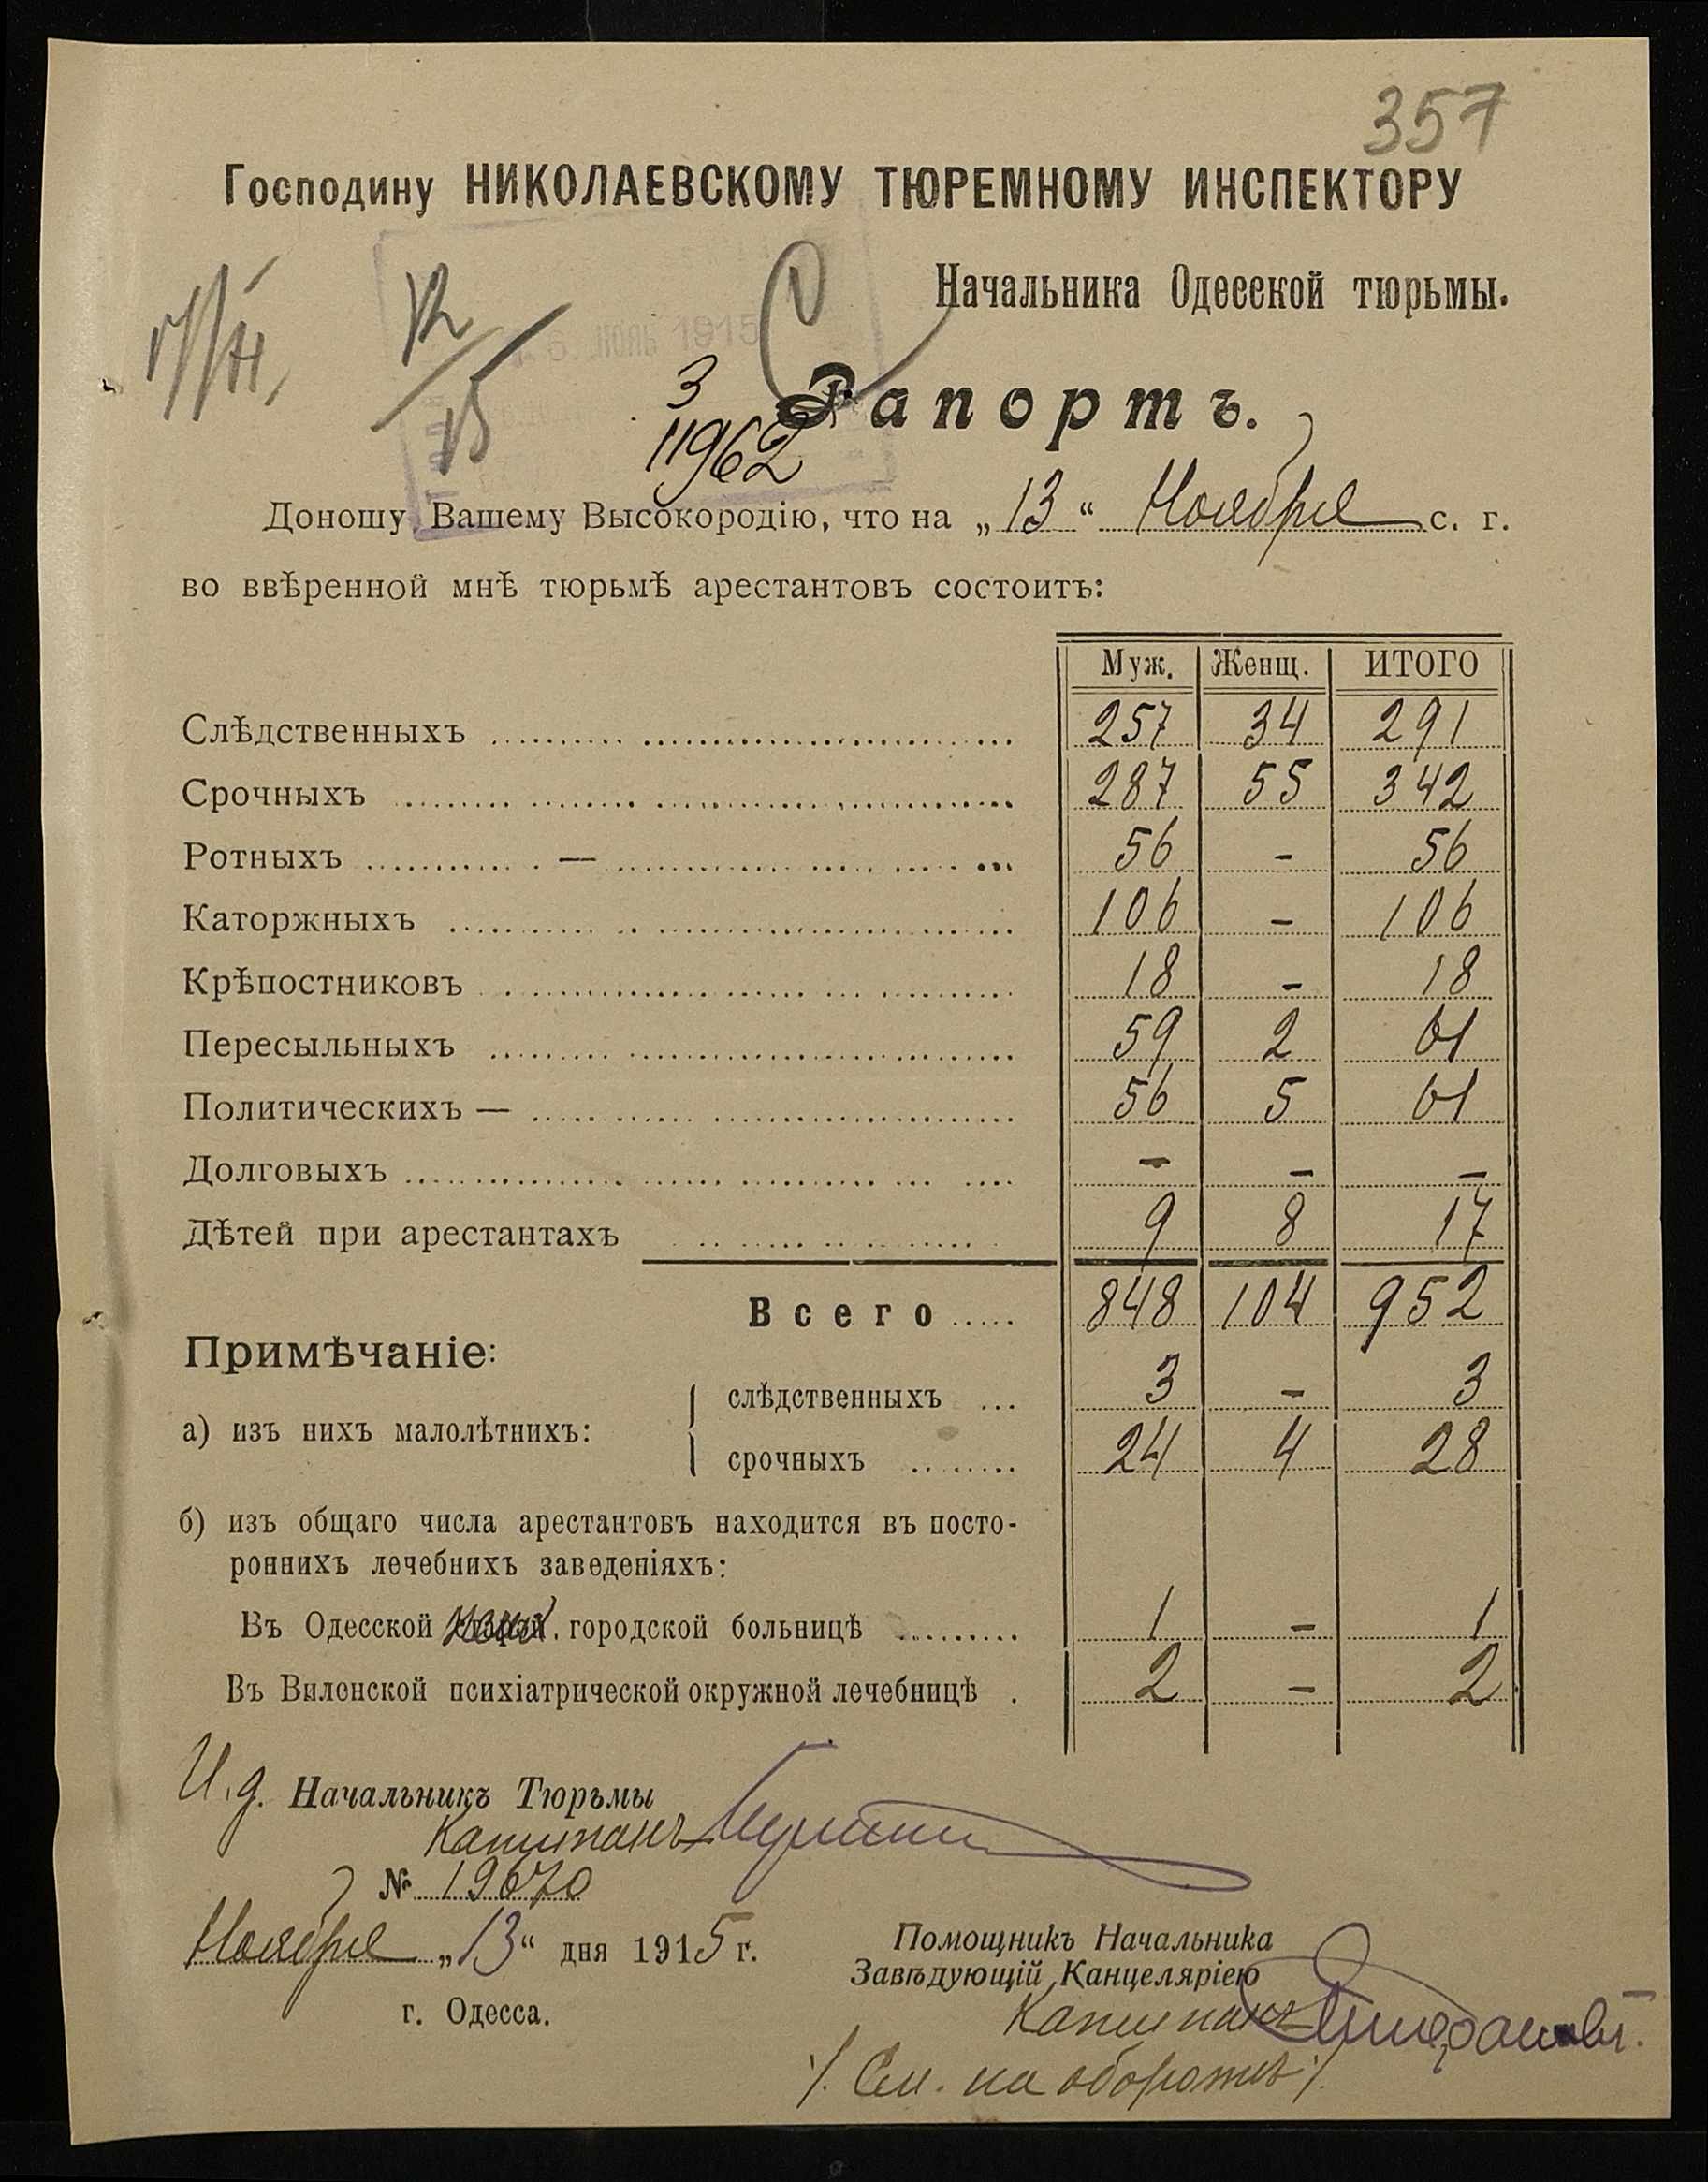 357
Господину НИКОЛАЕВСКОМУ ТЮРЕМНОМУ ИНСПЕКТОРУ
Начальника Одесской тюрьмы.
15. НОЯБ 1915
Рапортъ.
3
11962
Доношу Вашему Высокородію, что на „13“ Ноября с. г.
во ввѣренной мнѣ тюрьмѣ арестантовъ состоитъ:
Муж. Женщ. ИТОГО
Слѣдственныхъ 257 34 291
Срочныхъ 287 55 342
Ротныхъ — 56 - 56
Каторжныхъ 106 - 106
Крѣпостниковъ 18 - 18
Пересыльныхъ 59 2 61
Политическихъ — 56 5 61
Долговыхъ - - -
Дѣтей при арестантахъ 9 8 17
Всего 848 104 952
Примѣчаніе:
а) изъ нихъ малолѣтнихъ:
слѣдственныхъ 3 - 3
срочныхъ 24 4 28
б) изъ общаго числа арестантовъ находится въ посто-
роннихъ лечебнихъ заведеніяхъ:
Въ Одесской городской больницѣ 1 - 1
Въ Виленской психіатрической окружной лечебницѣ 2 - 2
И.д. Начальникъ Тюрьмы
Капитанъ
№ 19670
Ноября „13“ дня 1915 г.
г. Одесса.
Помощникъ Начальника
Завѣдующій Канцеляріею
Капитанъ
/. См. на оборотѣ /.